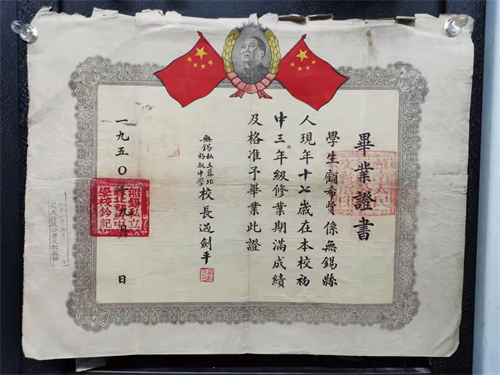 畢業證書
學生顧希賢係無錫縣
人現年十七歲在本校初
中三年級修業期滿成績
及格准予畢業此證
無錫私立
初級中學
校長
劍平
一九五〇年九月 日
無錫私立
學校鈐記